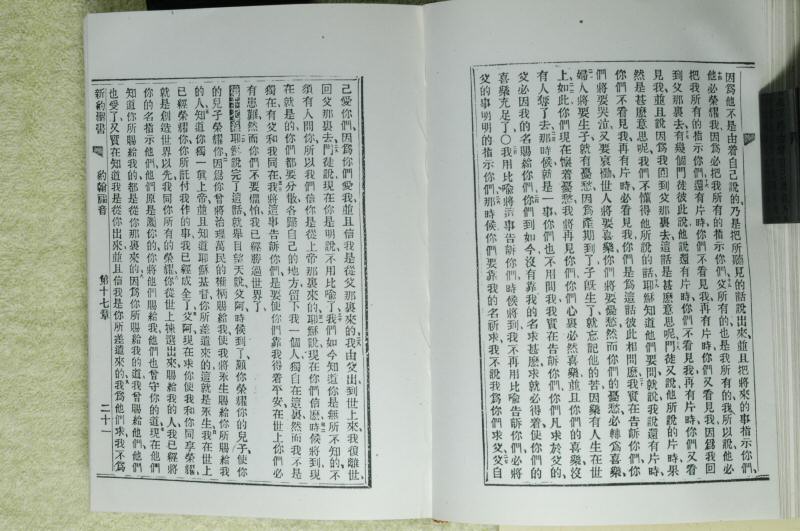 因爲他不是由着自己說的、乃是把所聽見的話說出來、並且把將來的事指示你們、
他必榮耀我、因爲必把我所有的指示你們、父所有的、也是我所有的、我所以說他必
把我所有的指示你們、還有片時、你們不看見我、再有片時、你們又看見我、因爲我回
到父那裏去、有幾個門徒彼此說、他說還有片時、你們不看見我、再有片時、你們又看
見我、並且說因爲我回到父那裏去、這話是甚麽意思呢、門徒又說、他所說的片時、果
然是甚麽意思呢、我們不懂得他所說的話、耶穌知道他們要問、就說、我說還有片時、
你們不看見我、再有片時、必看見我、你們是爲這話彼此相問麽、我實在告訴你們、你
們將要哭泣、又要哀慟、世人將要喜樂、你們將要憂愁、然而你們的憂愁、必轉爲喜樂、
婦人將要生子、就有憂愁、因爲產期到了、子旣生了、就忘記他的苦、因樂有人生在世
上、如此、你們現在懷着憂愁、我將再見你們、你們心裏必然喜樂、並且你們的喜樂、沒
有人奪了去、那時候就是一事、你們也不用問我、我實在告訴你們、你們凡求於父的、
父必因我的名賜給你們、你們到如今沒有靠我的名求甚麽、求就必得着、使你們的
喜樂充足了、〇我用比喻將這事告訴你們、時候將到、我不再用比喻告訴你們、必將
父的事明明的指示你們、那時候、你們要靠我的名祈求、我不說我爲你們求父、父自
己愛你們、因爲你們愛我、並且信我是從父那裏來的、我由父出到世上來、我復離世、
回父那裏去、門徒說、現在你是明說、不用比喻了、我們如今知道你是無所不知的、不
須有人問你、所以我們信你是從上帝那裏來的、耶穌說、現在你們信麽、時候將到、現
在就是的、你們都要分散、各歸自己的地方、留下我一個人、獨自在這裏、然而我不是
獨在、有父和我同在、我將這事告訴你們、是要使你們靠我得着平安、在世上你們必
有患難、然而你們不要懼怕、我已經勝過世界了、
耶穌說完了這話、就舉目望天、說、父阿、時候到了、願你榮耀你的兒子、使你
的兒子榮耀你、因爲你曾將治理萬民的權柄賜給我、使我將永生賜給你所賜給我
的人、知道你獨一眞上帝、並且知道耶穌基督、你所差遣來的、這就是永生、我在世上
已經榮耀你、你所託付我作的事、我已經成全了、父阿、現在求你使我和你同享榮耀、
就是創造世界以先、我同你所有的榮耀、你從世上揀選出來賜給我的人、我已經將
你的名指示他們、他們原是屬你的、你將他們賜給我、他們也曾守你的道、現在他們
知道你所賜給我的、都是從你那裏來的、因爲你所賜給我的道、我曾賜給他們、他們
也受了、又實在知道我是從你出來、並且信我是你所差遣來的、我爲他們求、我不爲
新約聖書 約翰福音 第十七章 二十一